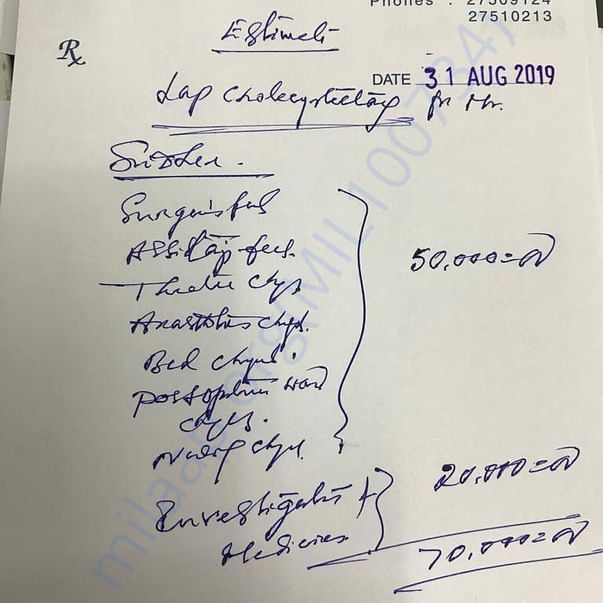 Phones : 27509124
27510213
Rx
Estimate
DATE 31 AUG 2019
Lap cholecystectomy for Mr.
Surgeons fees
Assistant fees.
Theatre chgs
50,000=00
Anaesthesia chgs.
Bed chgs.
Postoperative ward
chgs.
Nursing chgs
20,000=00
Investigation +
Medicines
70,000=00
milaap.org MIL1007347